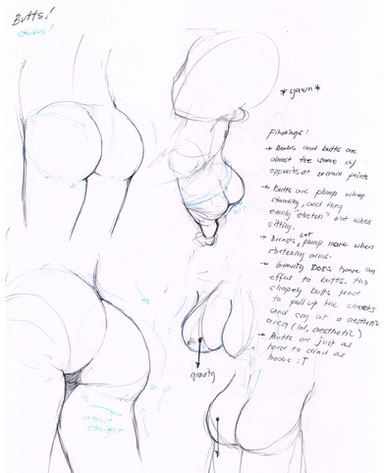 Butts!
studies!
*yawn*
Findings:
→ Boobs and butts are
almost the same w/
opposites at certain points
→ Butts are plump when
standing, and they
evenly "stretch" out when
sitting.
→ Breasts get plump more when
stretching arms.
→ Gravity DOES have an
effect to butts. The
shapely butts tend
to pull up the cheeks
and sag at a aesthetic
area (lol, aesthetic)
→ Butts are just as
hard to draw as
boobs :T
gravity
almost
straight